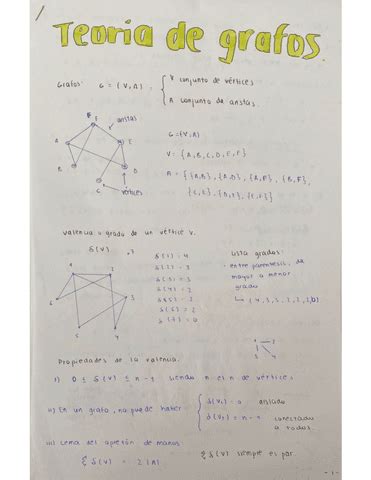 Teoría de grafos.
Grafos: G = (V,A) { V conjunto de vértices
A conjunto de aristas.
aristas
A
B
C
D
E
F
vértices
G = (V,A)
V = {A,B,C,D,E,F}
Valencia o grado de un vértice v.
δ(V)
δ(1) = 4
δ(2) = 3
δ(3) = 3
δ(7) = 0
Lista grados:
- entre paréntesis, de
mayor a menor
grado
Propiedades de la valencia.
i) 0 ≤ δ(V) ≤ n-1 siendo n el nº de vértices
ii) En un grafo, no puede haber { δ(Vi) = 0 aislado
conectado
a todos.
iii) Lema del apretón de manos
Σ δ(V) = 2|A| Σ δ(V) siempre es par.
-1-